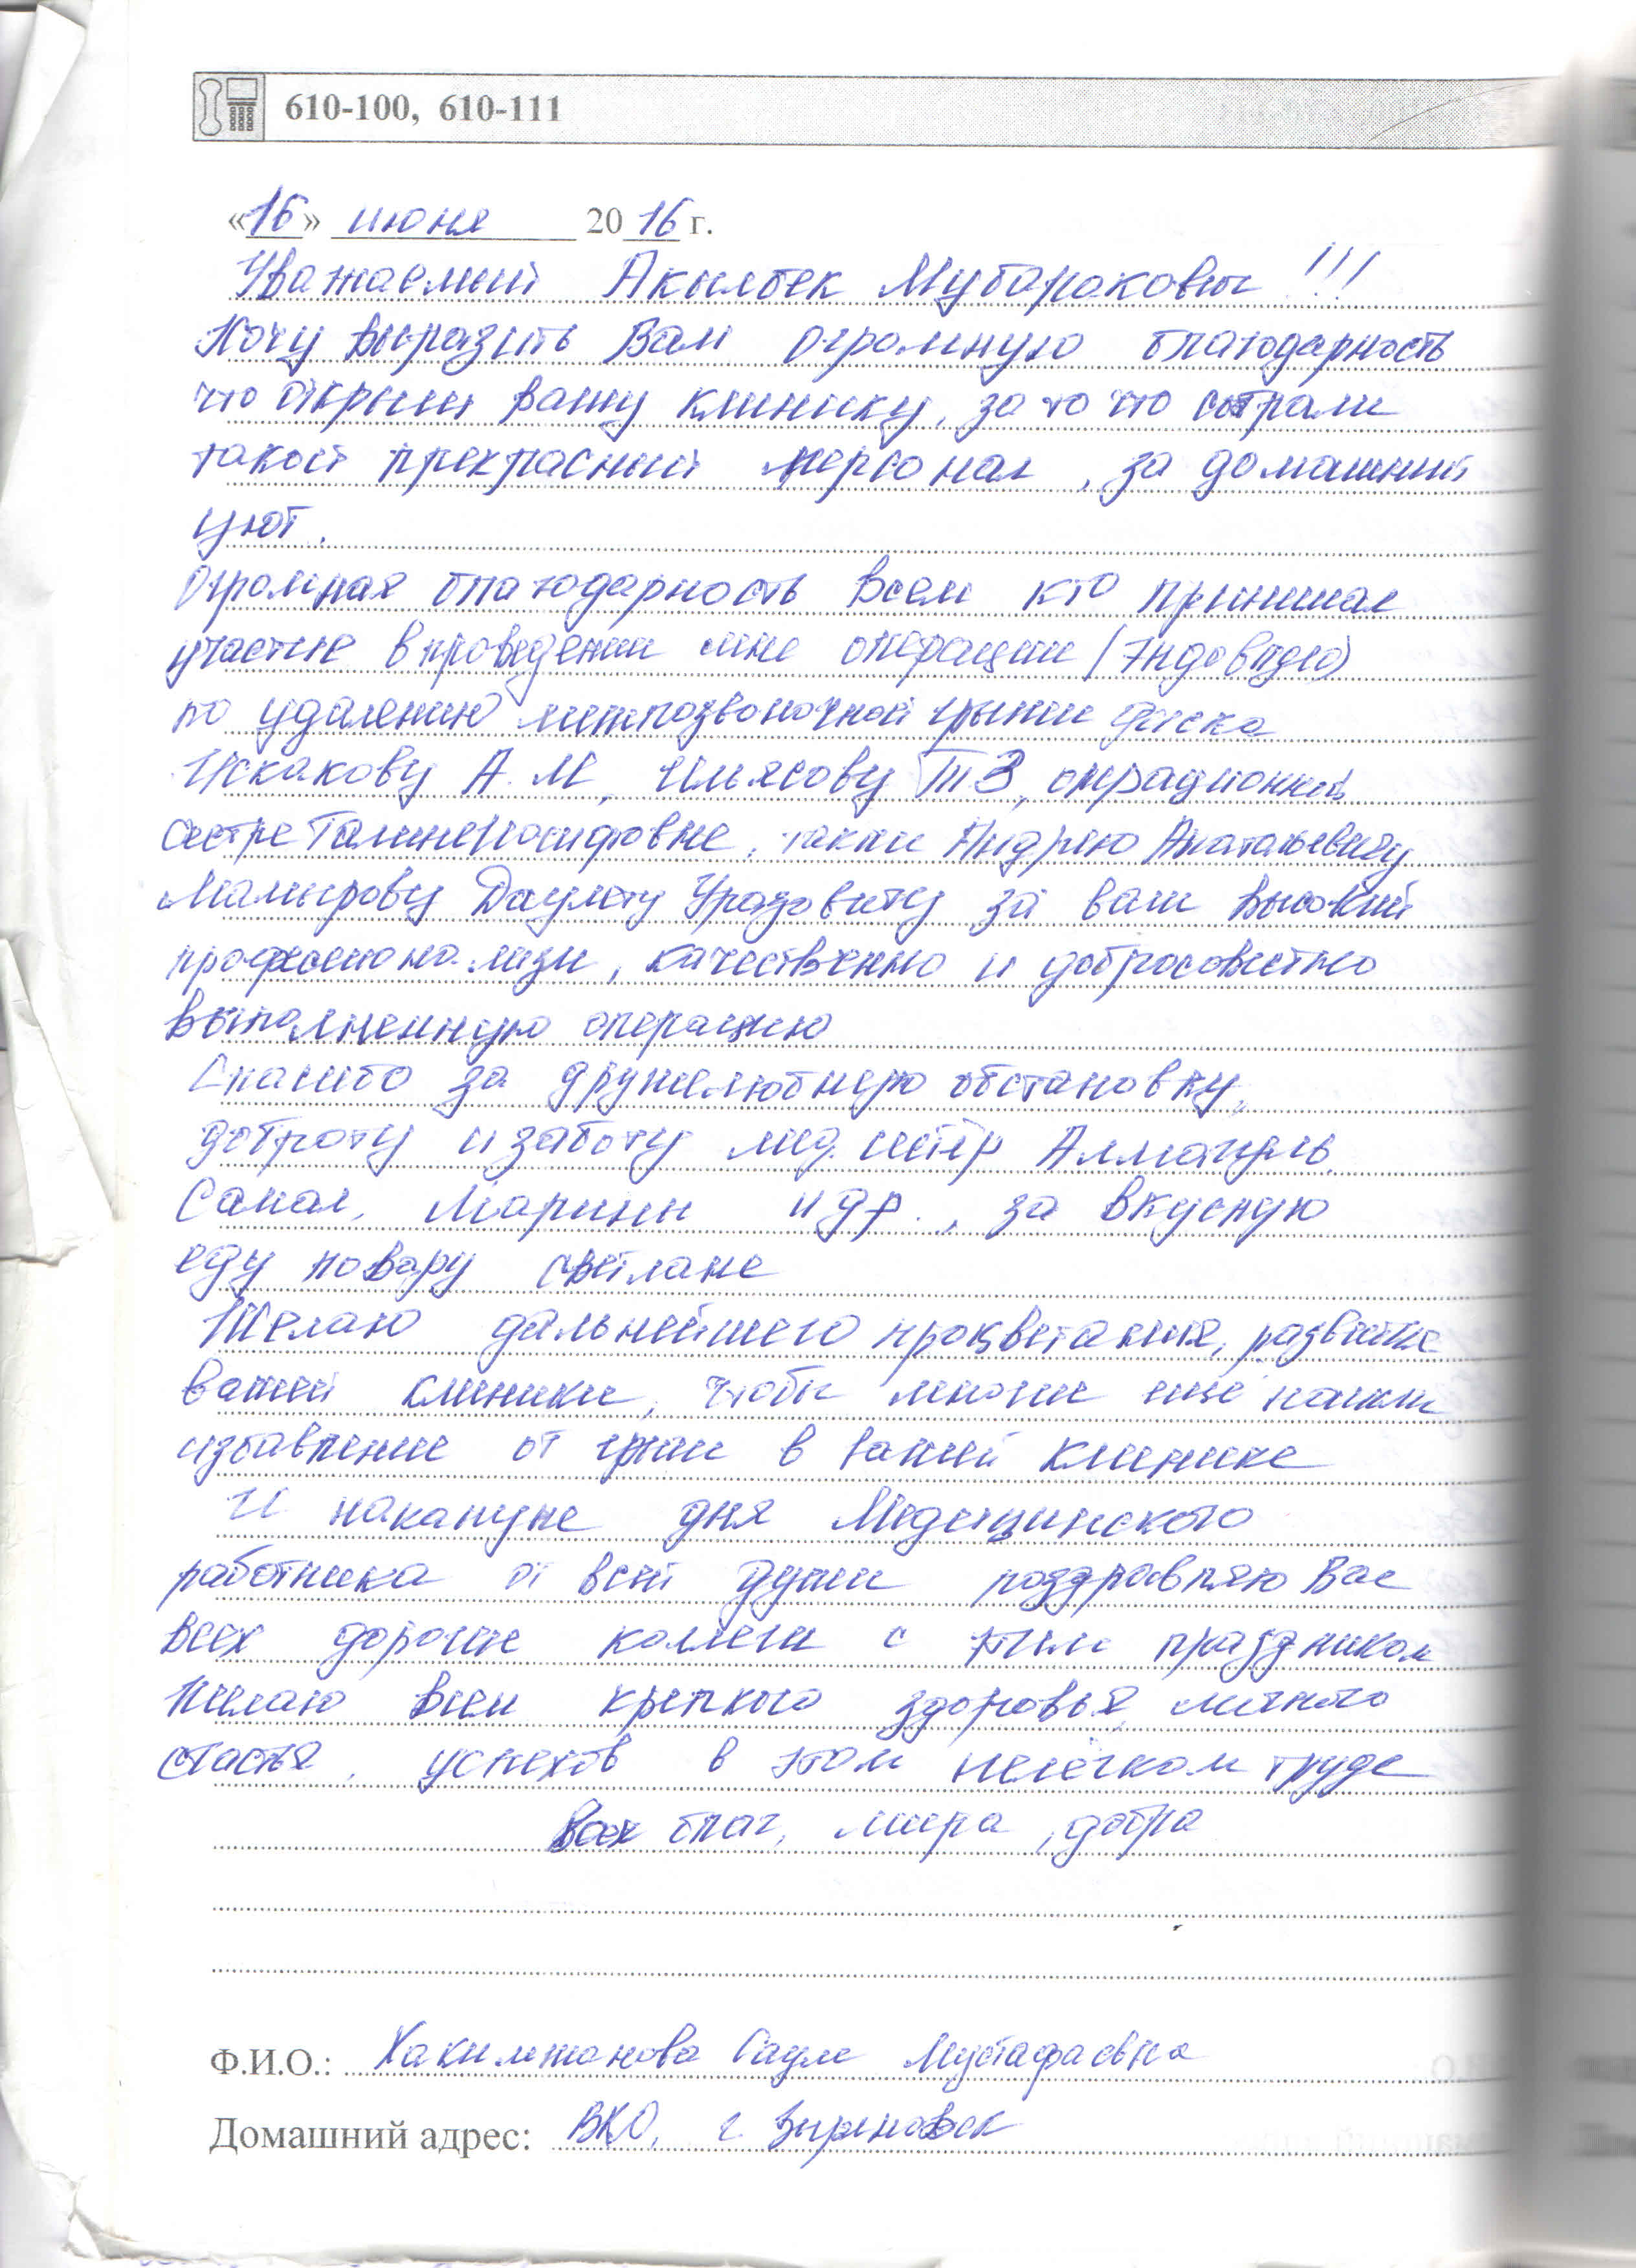 610-100, 610-111
«16» июня 2016 г.
Уважаемый Акылбек Мубаракович !!!
Хочу выразить Вам огромную благодарность
что открыли вашу клинику, за то что собрали
такой прекрасный персонал, за домашний
уют.
Огромная благодарность всем кто принимал
участие в проведении мне операции (Эндовидео)
по удалению межпозвоночной грыжи диска
Искакову А.М, Ильясову Т З, операционной
сестре Галине Иосифовне, также Андрею Анатольевичу
Мамырову Даулету Уразовичу за ваш высокий
профессионализм, качественно и добросовестно
выполненную операцию
Спасибо за дружелюбную обстановку,
доброту и заботу мед. сестёр Алмагуль
Самал, Марины и др., за вкусную
еду повару Светлане
Желаю дальнейшего процветания, развития
вашей клиники, чтобы многие ещё нашли
избавление от грыжи в вашей клинике
И накануне дня Медицинского
работника от всей души поздравляю Вас
всех дорогие коллеги с этим праздником
Желаю всем крепкого здоровья, личного
счастья, успехов в этом нелёгком труде
Всех благ, мира, добра
Ф.И.О.: Хакимжанова Сауле Мустафаевна
Домашний адрес: ВКО, г. Зыряновск